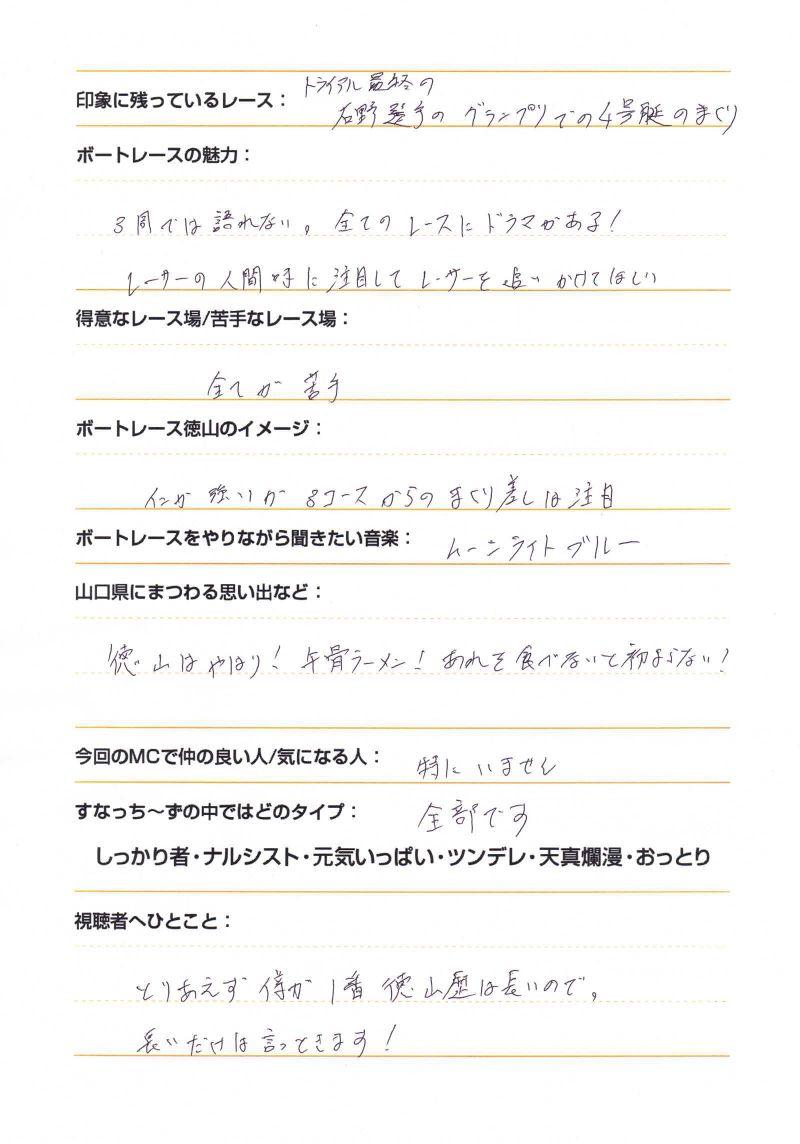 印象に残っているレース：
トライアル最終の
石野選手の グランプリでの4号艇のまくり
ボートレースの魅力：
3周では語れない。全てのレースにドラマがある！
レーサーの人間味に注目してレーサーを追いかけてほしい
得意なレース場/苦手なレース場：
全てが 苦手
ボートレース徳山のイメージ：
インが 強いが 3コースからの まくり差しは注目
ボートレースをやりながら聞きたい音楽：
ムーンライトブルー
山口県にまつわる思い出など：
徳山はやはり！牛骨ラーメン！あれを食べないと初まらない！
今回のMCで仲の良い人/気になる人：
特にいません
すなっち～ずの中ではどのタイプ：
全部です
しっかり者・ナルシスト・元気いっぱい・ツンデレ・天真爛漫・おっとり
視聴者へひとこと：
とりあえず 僕が 1番 徳山歴は長いので、
長いだけは言っときます！